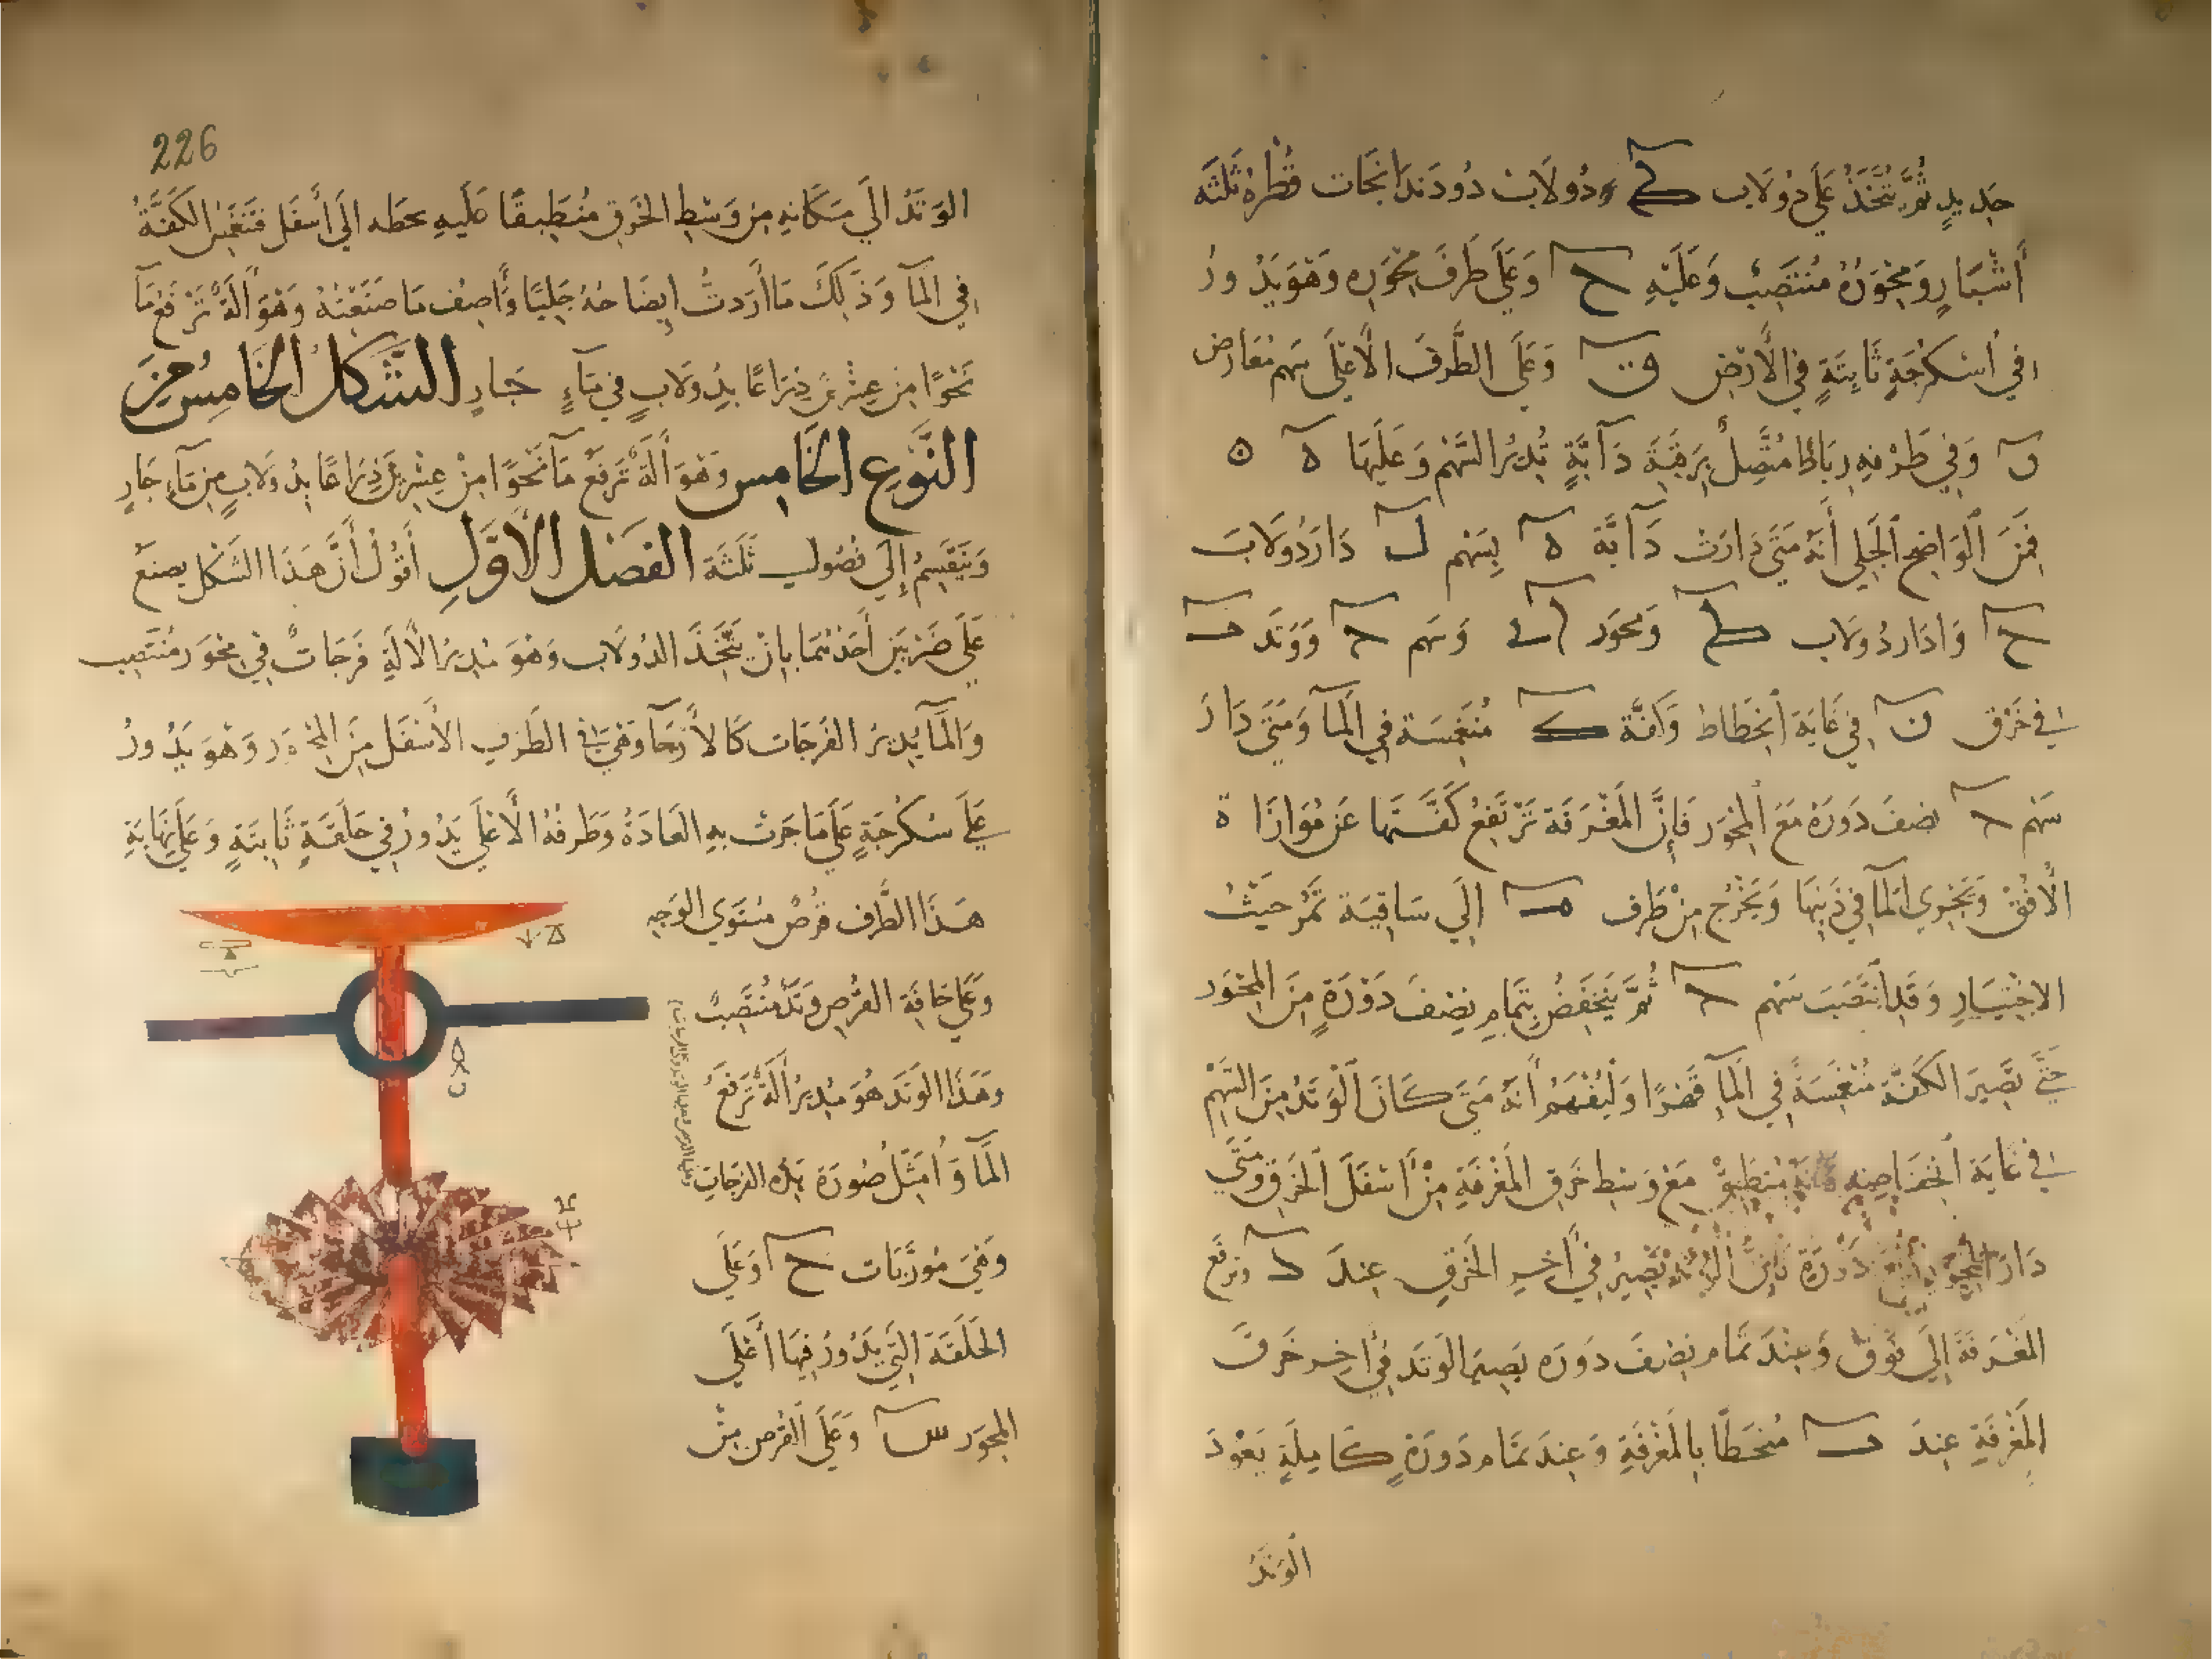 حديد ثُمَّ يُتَّخَذُ عَلَى دُولَاب دُولَاب ذُو دَندَانجَات قُطْرُهُ ثَلثَة
أَشْبَارٍ وَمِحْوَرُهُ مُنْتَصِبٌ وَعَلَيْهِ ح وَعَلَى طَرَفَ مِحْوَرِه وَهُوَ يَدُورُ
فِي أُسْكرجَةٍ ثَابِتَةٍ فِي الأَرْضِ وَعَلَى الطَّرَفَ الأَعْلَى سَهم مُعَارض
وَفِي طَرَفِهِ رِبَاطًا مُتَّصِلٌ بِرَقَبَةَ دَآبَّةٍ تُدِيرُ السَّهْم وَعَلَيْهَا ه
فَمِنَ الْوَاضِحِ الْجَلِي أَنَّهُ مَتَى دَارَتْ دَآبَّة ه بِسَهْم ل دَارَ دُولَابَ
ح وَادَار دُولَاب ط وَمحْوَر وَسَهم وَوَتَد
فِي خَرْق ن فِي غَايَةَ انْحِطَاط وَكفَّة ك مُنْغَمِسَة فِي الْمَآ وَمَتَى دَارَ
سَهْم نصْفَ دَوْرَة مَعَ الْمِحْوَر فَإِنَّ الْمَغْرَفَة تَرْتَفِعُ كَفَّتهَا عَنْ مُوَازَاة
الأُفُقْ وَيَجْرِي الْمَآ فِي ذَنبِهَا وَيَخْرُج مِنْ طَرف م إِلَى سَاقِيَة تَمُرّ حَيْثُ
الاخْتِيَارِ وَقَدِ انْتَصَبَ سَهْم ثُمَّ يَنْخَفِضُ بِتَمَامِ نِصْفَ دَوْرَةٍ مِنَ الْمِحْوَر
حَتَّى تَصِيرَ الْكفَّة مُنْغَمِسَةً فِي الْمَآ قَهْرًا وَلْيُفْهَمْ أَنَّهُ مَتَى كَانَ الْوَتَدُ مِنَ السَّهْمِ
فِي غَايَة انْخِفَاضِهِ فَإِنَّهُ مُنْطَبِقٌ مَعَ وَسَطِ خَرْقِ الْمَغْرَفَةِ مِنْ أَسْفَلَ الْخَرْقِ وَمَتَى
دَارَ الْمِحْوَر دَوْرَة فَإِنَّ الْوَتَدَ يَصِيرُ فِي آخِرِ الْخَرْقِ عِندَ وَتَرفَع
الْمَغْرَفَة إِلَى فَوْق وَعِنْدَ تَمَامِ نِصْفَ دَوْرَه يَصِيرُ الْوَتَد فِي آخِرِ خَرْقَ
الْمَغْرَفَةِ عِندَ مُنحَطًّا بِالْمَغْرَفَةِ وَعِندَ تَمَامِ دَوْرَةٍ كَامِلَةٍ يَعُودُ
الْوَتَدُ
226
الوَتَدُ إِلَى مَكَانِهِ مِنْ وَسَطِ الخَرْقِ مُنطَبِقًا عَلَيهِ يحطه إِلَى أَسْفَل فَتَنغَمِسُ الكَفَّةُ
فِي الْمَآ وَذَلِكَ مَا أَرَدتُ إِيضَاحهُ جَلِيًا وَأَصِفُ مَا صَنَعْتُهُ وَهُوَ آلَةٌ تَرْفَعُ مَآ
نَحْوًا مِنْ عِشْرِينَ ذِرَاعًا بِدُولَابٍ فِي مَآءٍ جَارٍ الشَّكلُ الخَامِسُ مِنَ
النَّوْعِ الخَامِسِ وَهُوَ آلَةٌ تَرْفَعُ مَآ نَحْوًا مِنْ عِشْرِينَ ذِرَاعًا بِدُولَابٍ مِن مَآءٍ جَارٍ
وَيَنْقَسِمُ إِلَى فُصُولٍ ثَلَثَة الفَصْلُ الأَوَّل أَقُولُ أَنَّ هَذَا الشَكْل يصنَعُ
عَلَى ضَرْبَيْنِ أَحَدُهُمَا بِانْ يُتَّخَذَ الدُولَاب وَهُوَ مُدِيرُ الأَلَةِ فَرَجَاتٌ فِي مِحْوَر مُنْتَصِب
وَالْمَآ يُدِيرَ الفَرَجَات كَالأَرْحَآ وَهِيَ فِي الطَّرفِ الأَسْفَل مِنَ الْمِحْوَر وَهُوَ يَدُورُ
عَلَى سُكْرُجَةٍ عَلَى مَا جَرَتْ بِهِ الْعَادَةُ وَطَرفُهُ الأَعْلَى يَدُورُ فِي حَلْقَةٍ ثَابِتَةٍ وَعَلَى نِهَايَةِ
هَذَا الطَّرف قُرْصٌ مُسْتَوِي الوَجهِ
وَعَلَى حَافَة القُرْصِ وَتَدٌ مُنْتَصِبٌ
وَهَذَا الوَتَد هُوَ مُدِيرُ آلَةٌ تَرْفَعُ
الْمَآ وَأُمَثِّلُ صُورَة هَذِهِ الفَرَجَاتِ
وَهِيَ مُورَّبَات ح وَعَلَى
الحَلْقَة التِي يَدُورُ فِيهَا أَعْلَى
المِحْوَر س وَعَلَى القُرصِ مِنْ